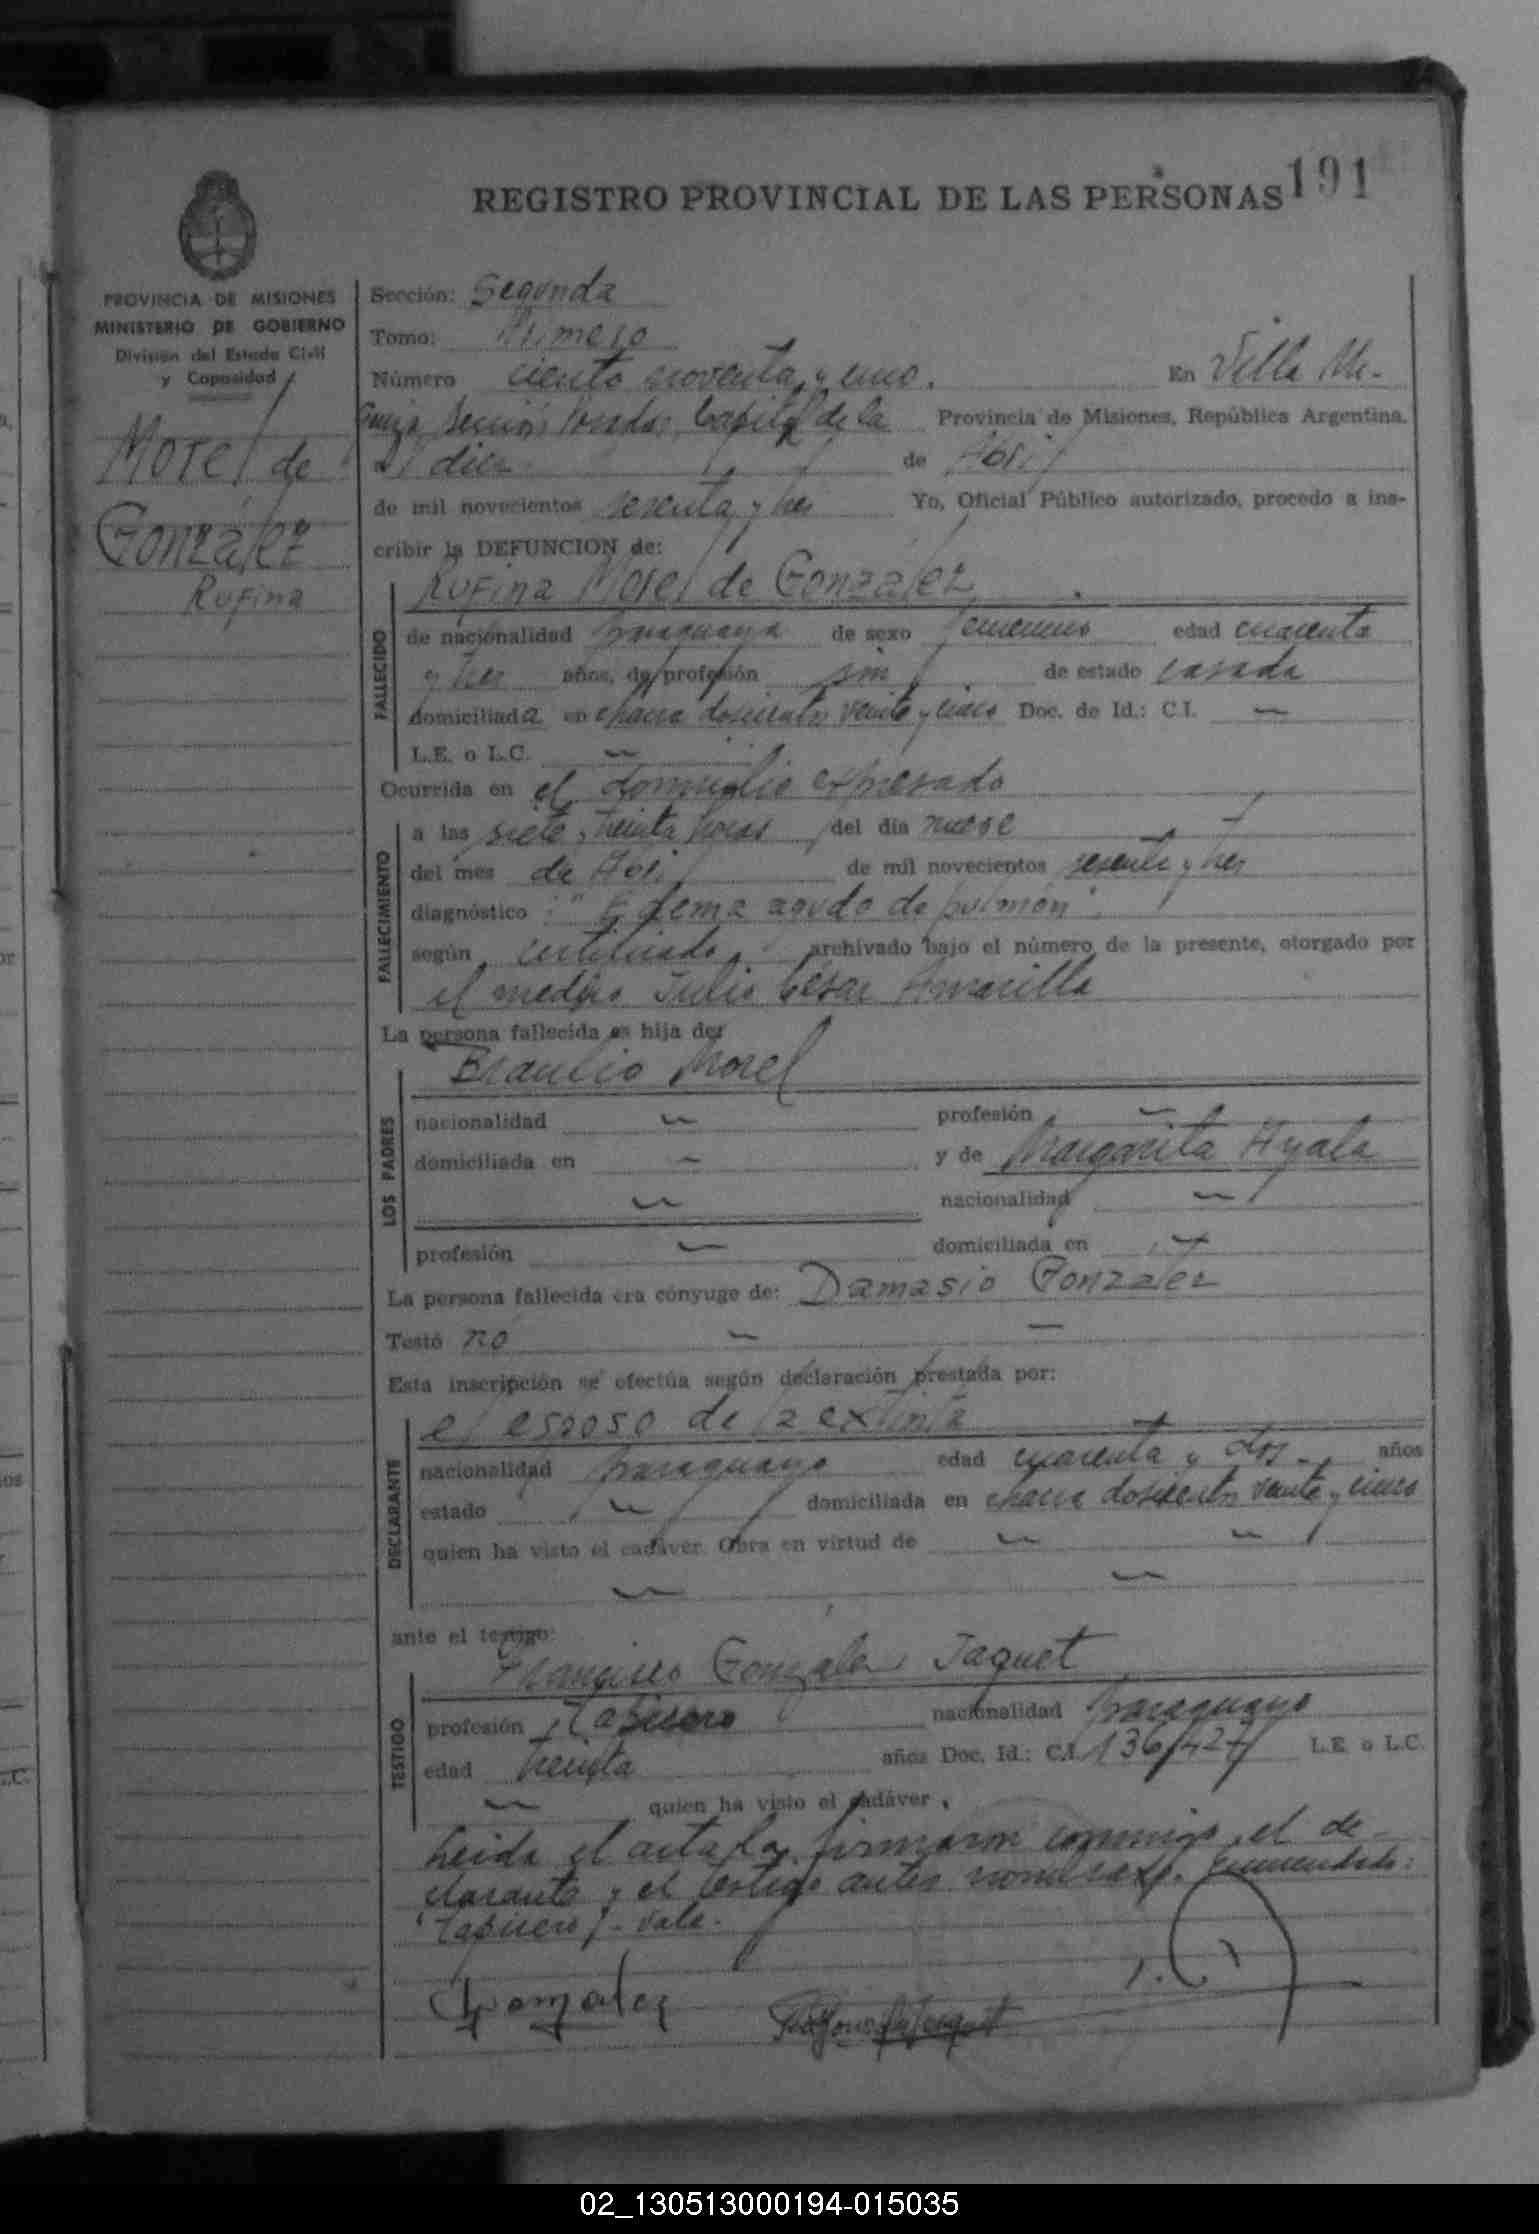 REGISTRO PROVINCIAL DE LAS PERSONAS 191
PROVINCIA DE MISIONES
MINISTERIO DE GOBIERNO
División del Estado Civil
y Capacidad
Morel de
González
Rufina
Sección: Segunda
Tomo: Primero
Número ciento noventa y uno. En Villa Ur-
quiza Sección Posadas Capital de la Provincia de Misiones, República Argentina,
a diez de Abril
de mil novecientos sesenta y tres Yo, Oficial Público autorizado, procedo a ins-
cribir la DEFUNCION de:
Rufina Morel de González
FALLECIDO
de nacionalidad paraguaya de sexo femenino edad cuarenta
y tres años, de profesión sin de estado casada
domiciliada en chacra doscientos veinte y cinco Doc. de Id.: C.I. —
L.E. o L.C. —
Ocurrida en el domicilio expresado
FALLECIMIENTO
a las siete y treinta horas del día nueve
del mes de Abril de mil novecientos sesenta y tres
diagnóstico: "Edema agudo de pulmón".
según certificado archivado bajo el número de la presente, otorgado por
el medico Julio César Amarilla
La persona fallecida es hija de:
LOS PADRES
Braulio Morel
nacionalidad — profesión —
domiciliada en — y de Margarita Ayala
— nacionalidad —
profesión — domiciliada en —
La persona fallecida era cónyuge de: Damasio González
Testó no — —
Esta inscripción se efectúa según declaración prestada por:
DECLARANTE
el esposo de la extinta
nacionalidad paraguayo edad cuarenta y dos años
estado — domiciliada en chacra doscientos veinte y cinco
quien ha visto el cadáver. Obra en virtud de — —
— —
ante el testigo:
TESTIGO
Francisco Gonzalez Jaquet
profesión Tapicero nacionalidad paraguayo
edad treinta años Doc. Id.: C.I. 136427 L.E. o L.C.
— quien ha visto el cadáver.
Leída el acta la firmaron conmigo, el de-
clarante y el testigo antes nombrado. Enmendado:
"Tapicero" - vale.
Gonzalez
02_130513000194-015035